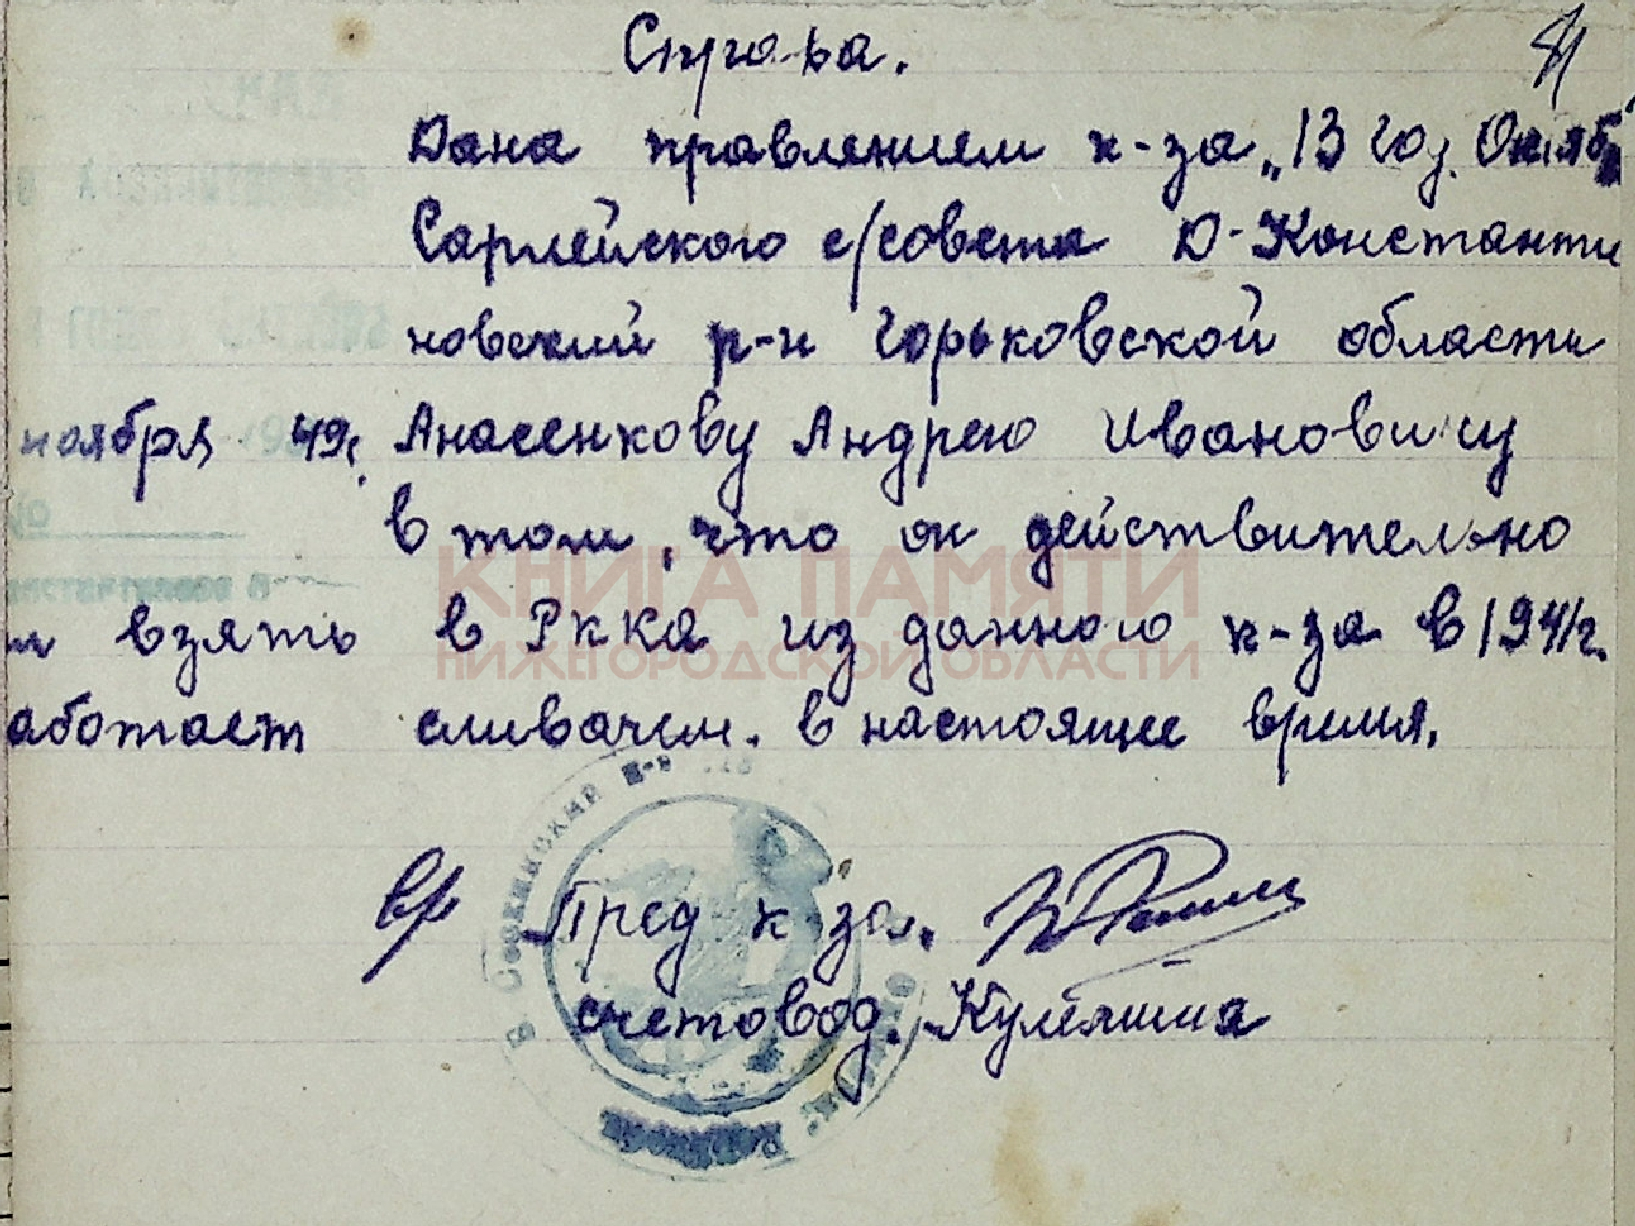 Справка.
Дана правлением к-за „13 год. Октяб
Сарлейского с/совета Д-Константи
новский р-н Горьковской области
ноября 49г. Анасенкову Андрею Ивановичу
в том, что он действительно
взять в РККА из данного к-за в 1941г.
аботает сливачем. в настоящее время.
Вр Пред к-за.
счетовод.
КНИГА ПАМЯТИ
НИЖЕГОРОДСКОЙ ОБЛАСТИ